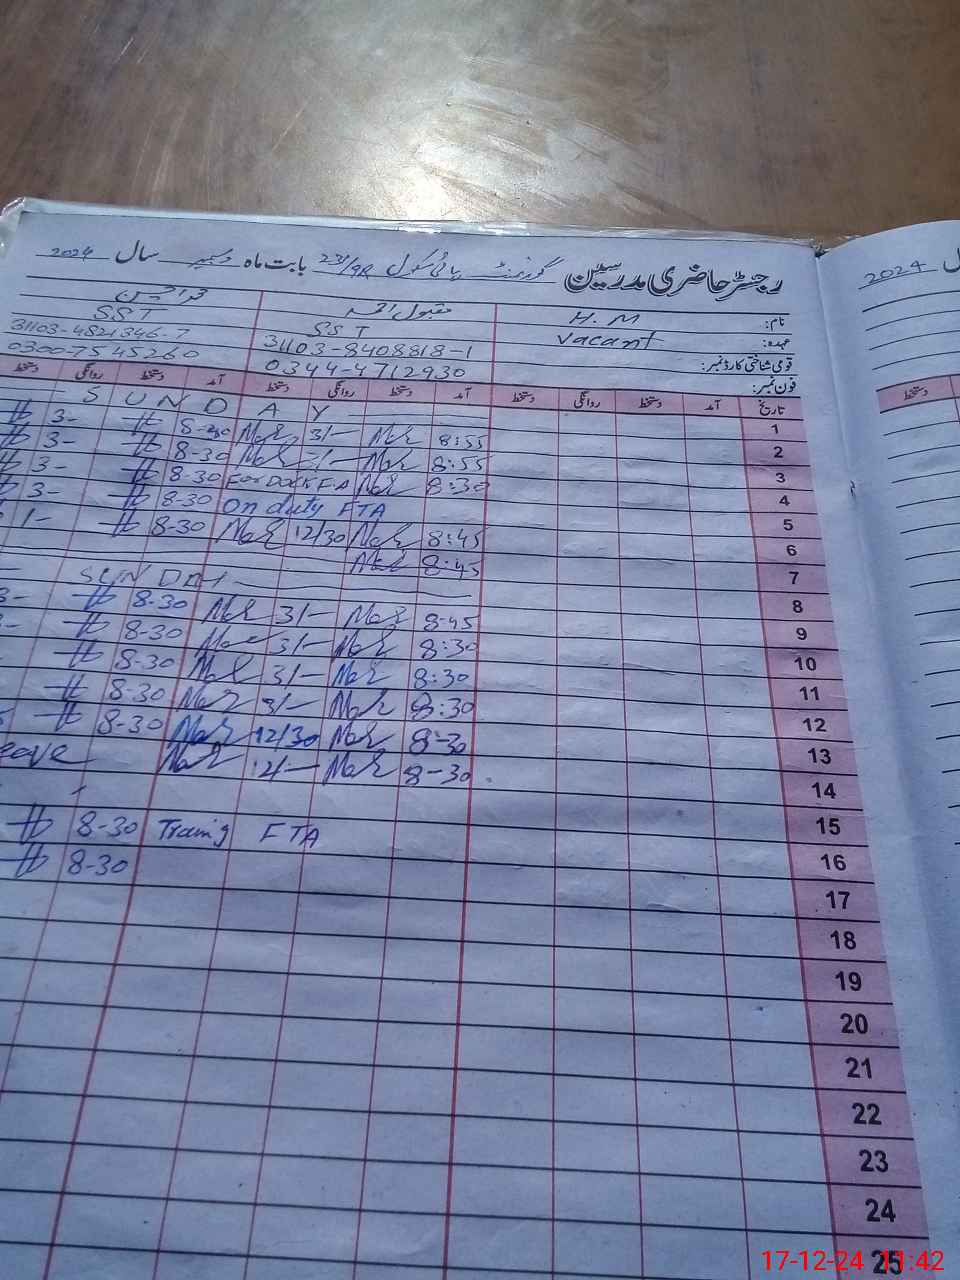 رجسٹر حاضری مدرسین گورنمنٹ ہائی سکول 231/9R بابت ماہ دسمبر سال 2024
نام: H.M مقبول احمد
عہدہ: Vacant SST SST
قومی شناختی کارڈ نمبر: 31103-8408818-1 31103-4821346-7
فون نمبر: 0344-4712930 0300-7545260
تاریخ آمد دستخط روانگی دستخط آمد دستخط روانگی دستخط آمد دستخط روانگی دستخط
1 SUNDAY
2 8:55 3/- 8-30 3-
3 8:55 3/- 8-30 3-
4 8:30 8-30 3-
5 On duty FTA 8-30 3-
6 8:45 12/30 8-30 1/-
7 8:45
8 SUNDAY
9 8-45 3/- 8-30 3-
10 8:30 3/- 8-30
11 8:30 3/- 8-30
12 8:30 3/- 8-30
13 8-30 12/30 8-30
14 8-30 2/- leave
15
16 Training FTA 8-30
17 8-30
18
19
20
21
22
23
24
25
2024
دستخط
17-12-24 11:42